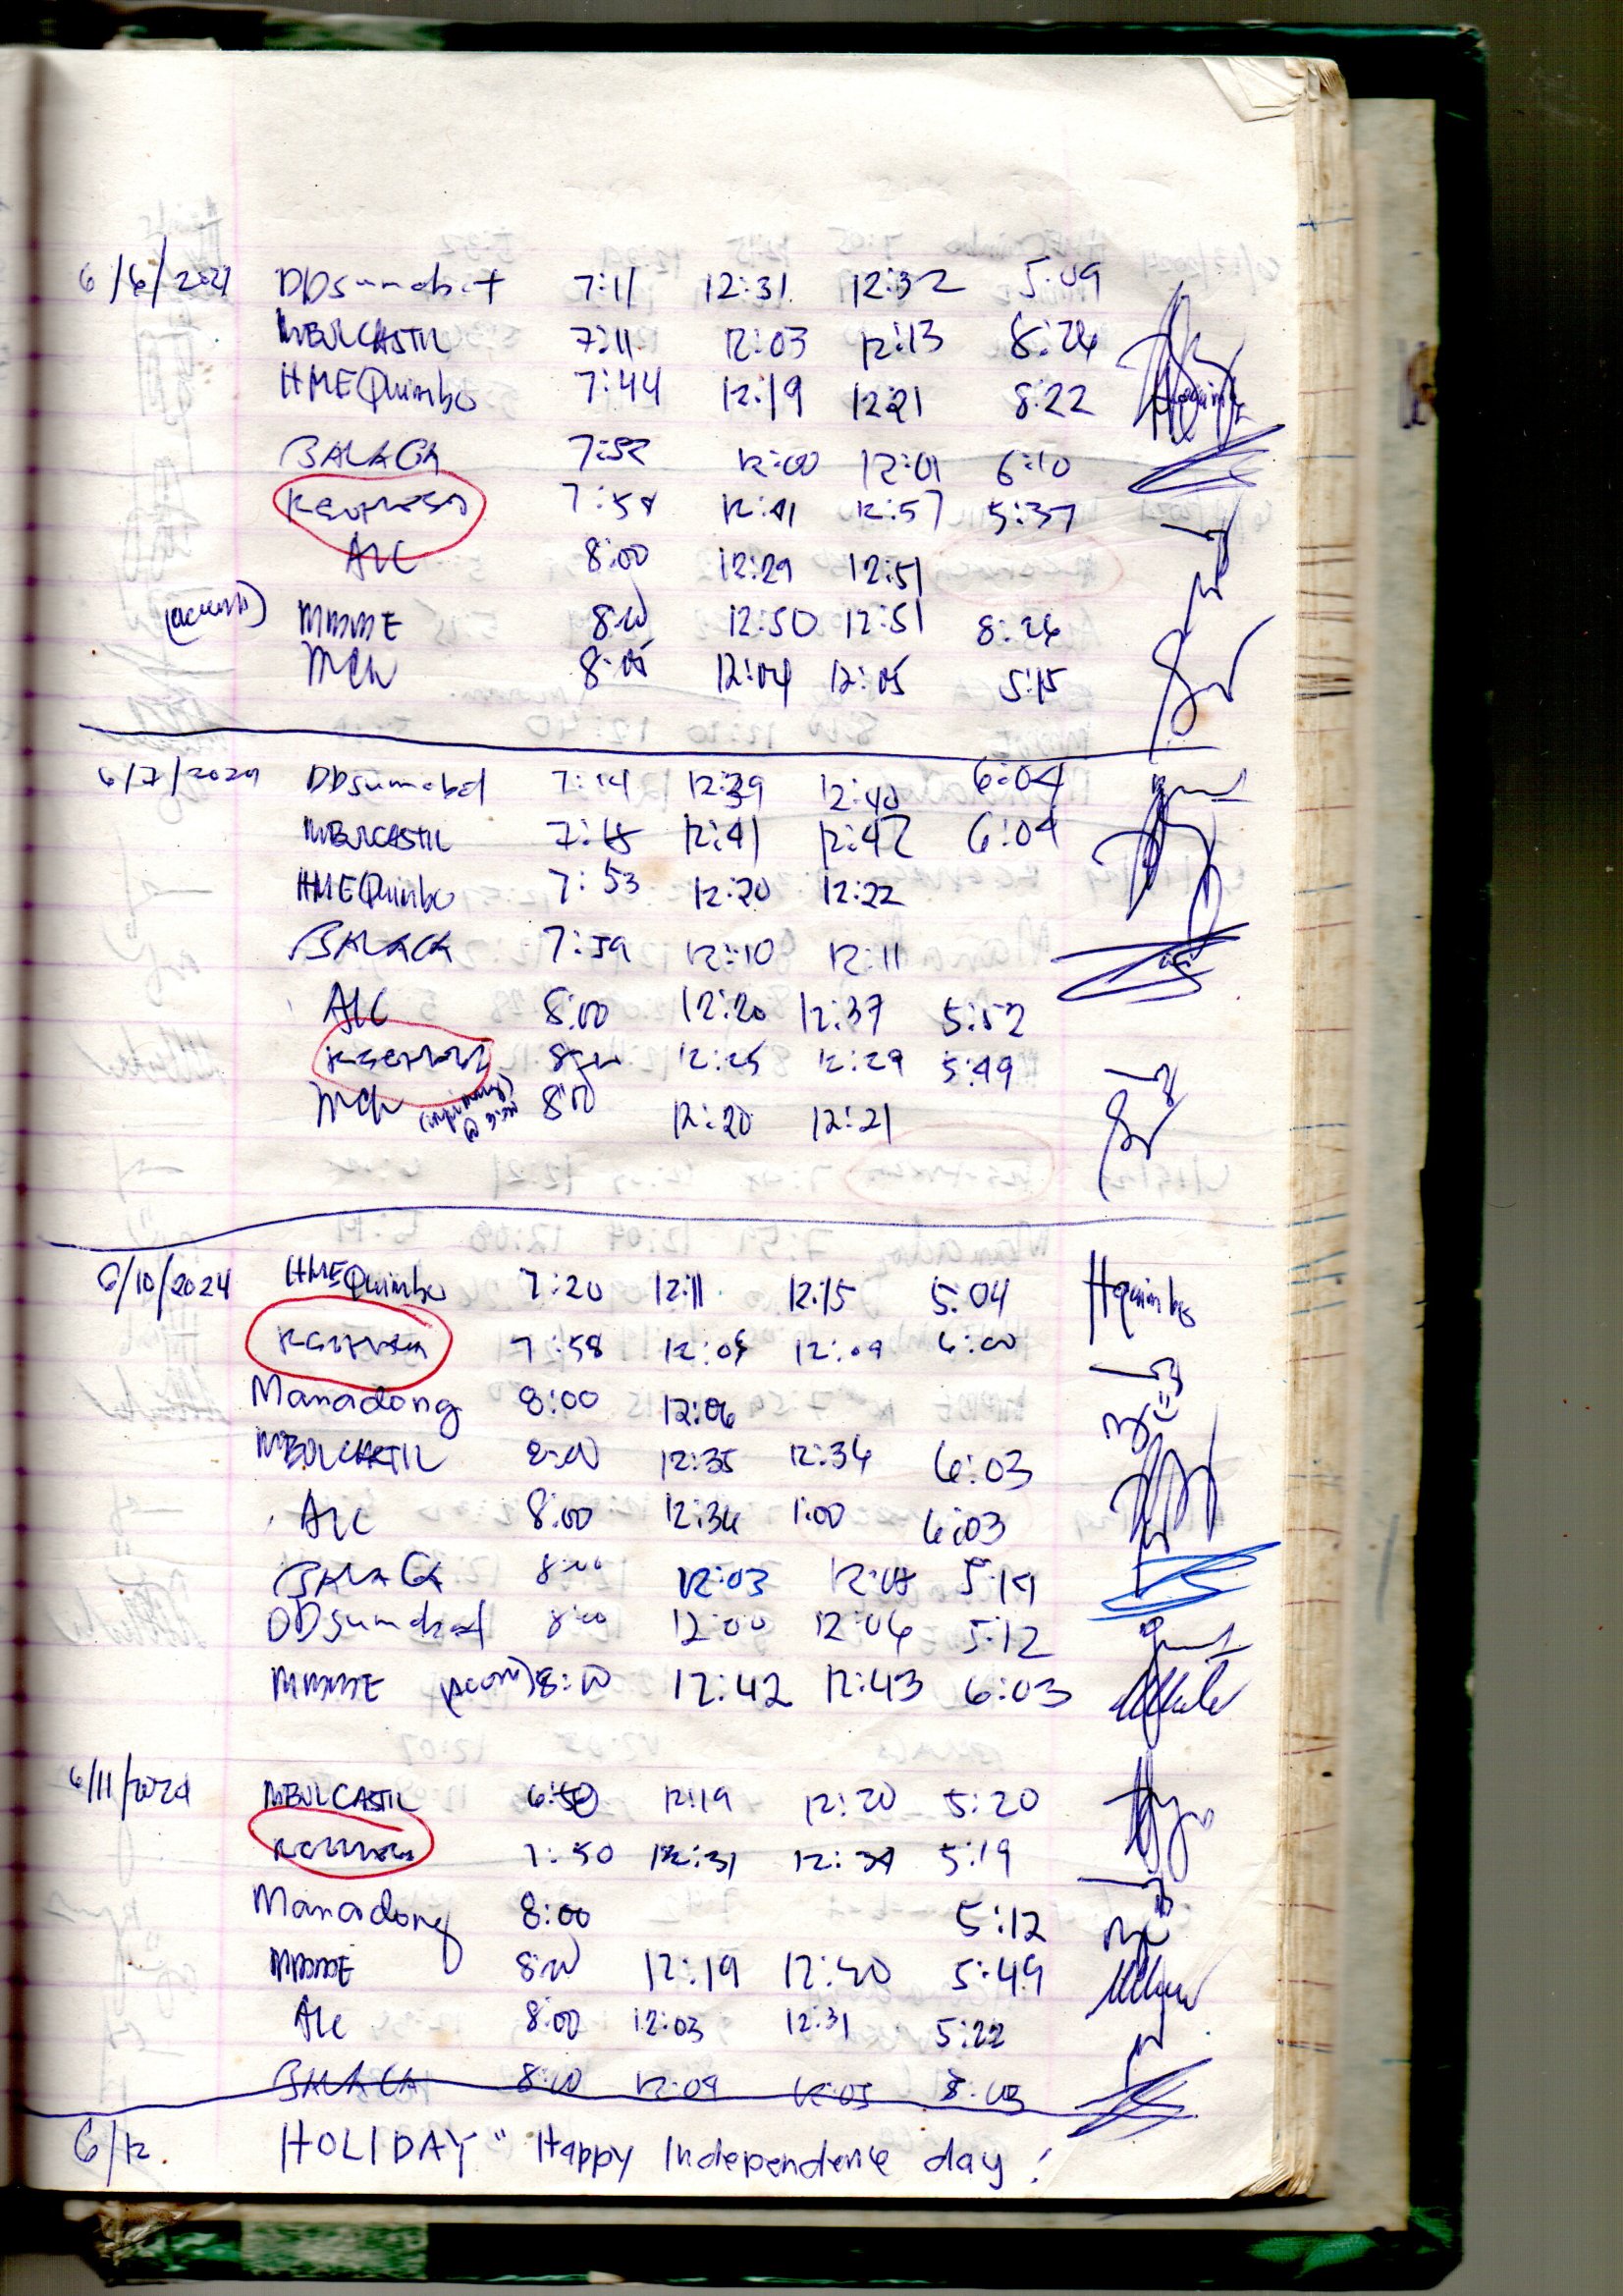 6/6/2024 DDSumabat 7:11 12:31 12:32 5:09
MBULCASTIL 7:11 12:03 12:13 8:26
HMEQuimbo 7:44 12:19 12:21 8:22
BALAGA 7:52 12:00 12:01 6:10
7:58 12:41 12:57 5:37
ALC 8:00 12:29 12:51
8:00 12:50 12:51 8:26
MCH 8:05 12:04 12:05 5:15
6/7/2024 DDSumabat 7:14 12:39 12:40 6:04
MBULCASTIL 7:15 12:41 12:42 6:04
HMEQuimbo 7:53 12:20 12:22
BALAGA 7:59 12:10 12:11
ALC 8:00 12:20 12:37 5:52
12:25 12:29 5:49
MCH 8:00 12:20 12:21
6/10/2024 HMEQuimbo 7:20 12:11 12:15 5:04 Hquimbo
7:58 12:09 6:00
Manadong 8:00 12:06
MBULCASTIL 8:00 12:35 12:36 6:03
ALC 8:00 12:36 1:00 6:03
BALAGA 8:00 12:03 5:19
DDSumabat 8:00 12:00 12:06 5:12
8:00 12:42 12:43 6:03
6/11/2024 MBULCASTIL 6:50 12:19 12:20 5:20
7:50 12:31 5:19
Manadong 8:00 5:12
8:00 12:19 12:20 5:49
ALC 8:00 12:03 12:31 5:22
BALAGA 8:00 12:04 12:05 8:03
6/12. HOLIDAY " Happy Independence day !